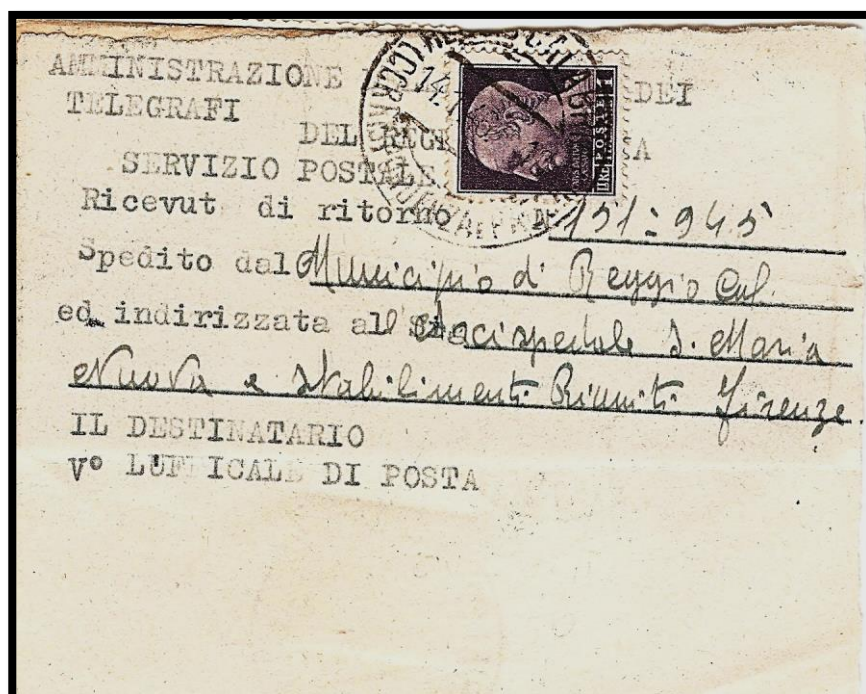 AMMINISTRAZIONE DEI
TELEGRAFI
DEL REG
SERVIZIO POSTALE
Ricevut di ritorno N 151=945
Spedito dal Municipio di Reggio Cal.
ed indirizzata all Arcispedale S. Maria
Nuova e Stabilimenti Riuniti Firenze.
IL DESTINATARIO
V° LUFFICALE DI POSTA